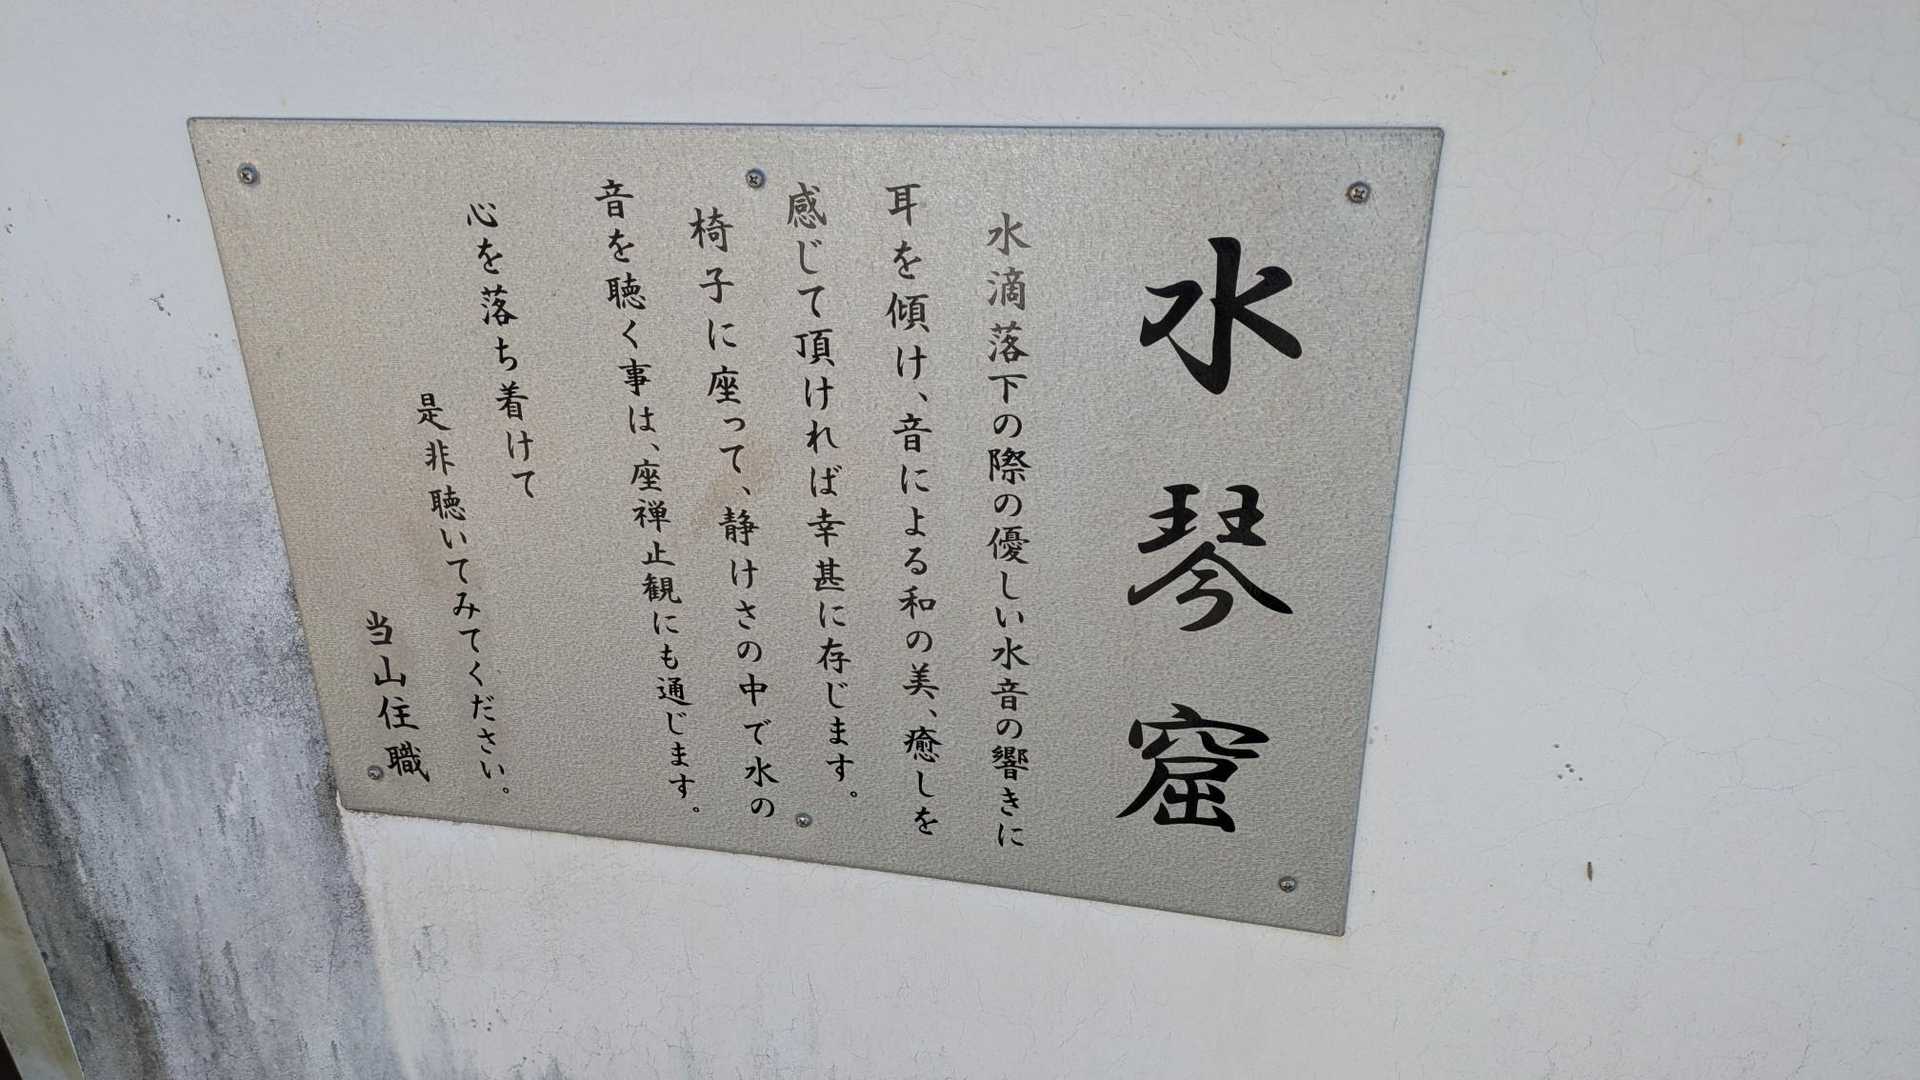 水琴窟
水滴落下の際の優しい水音の響きに
耳を傾け、音による和の美、癒しを
感じて頂ければ幸甚に存じます。
椅子に座って、静けさの中で水の
音を聴く事は、座禅止観にも通じます。
心を落ち着けて
是非聴いてみてください。
当山住職